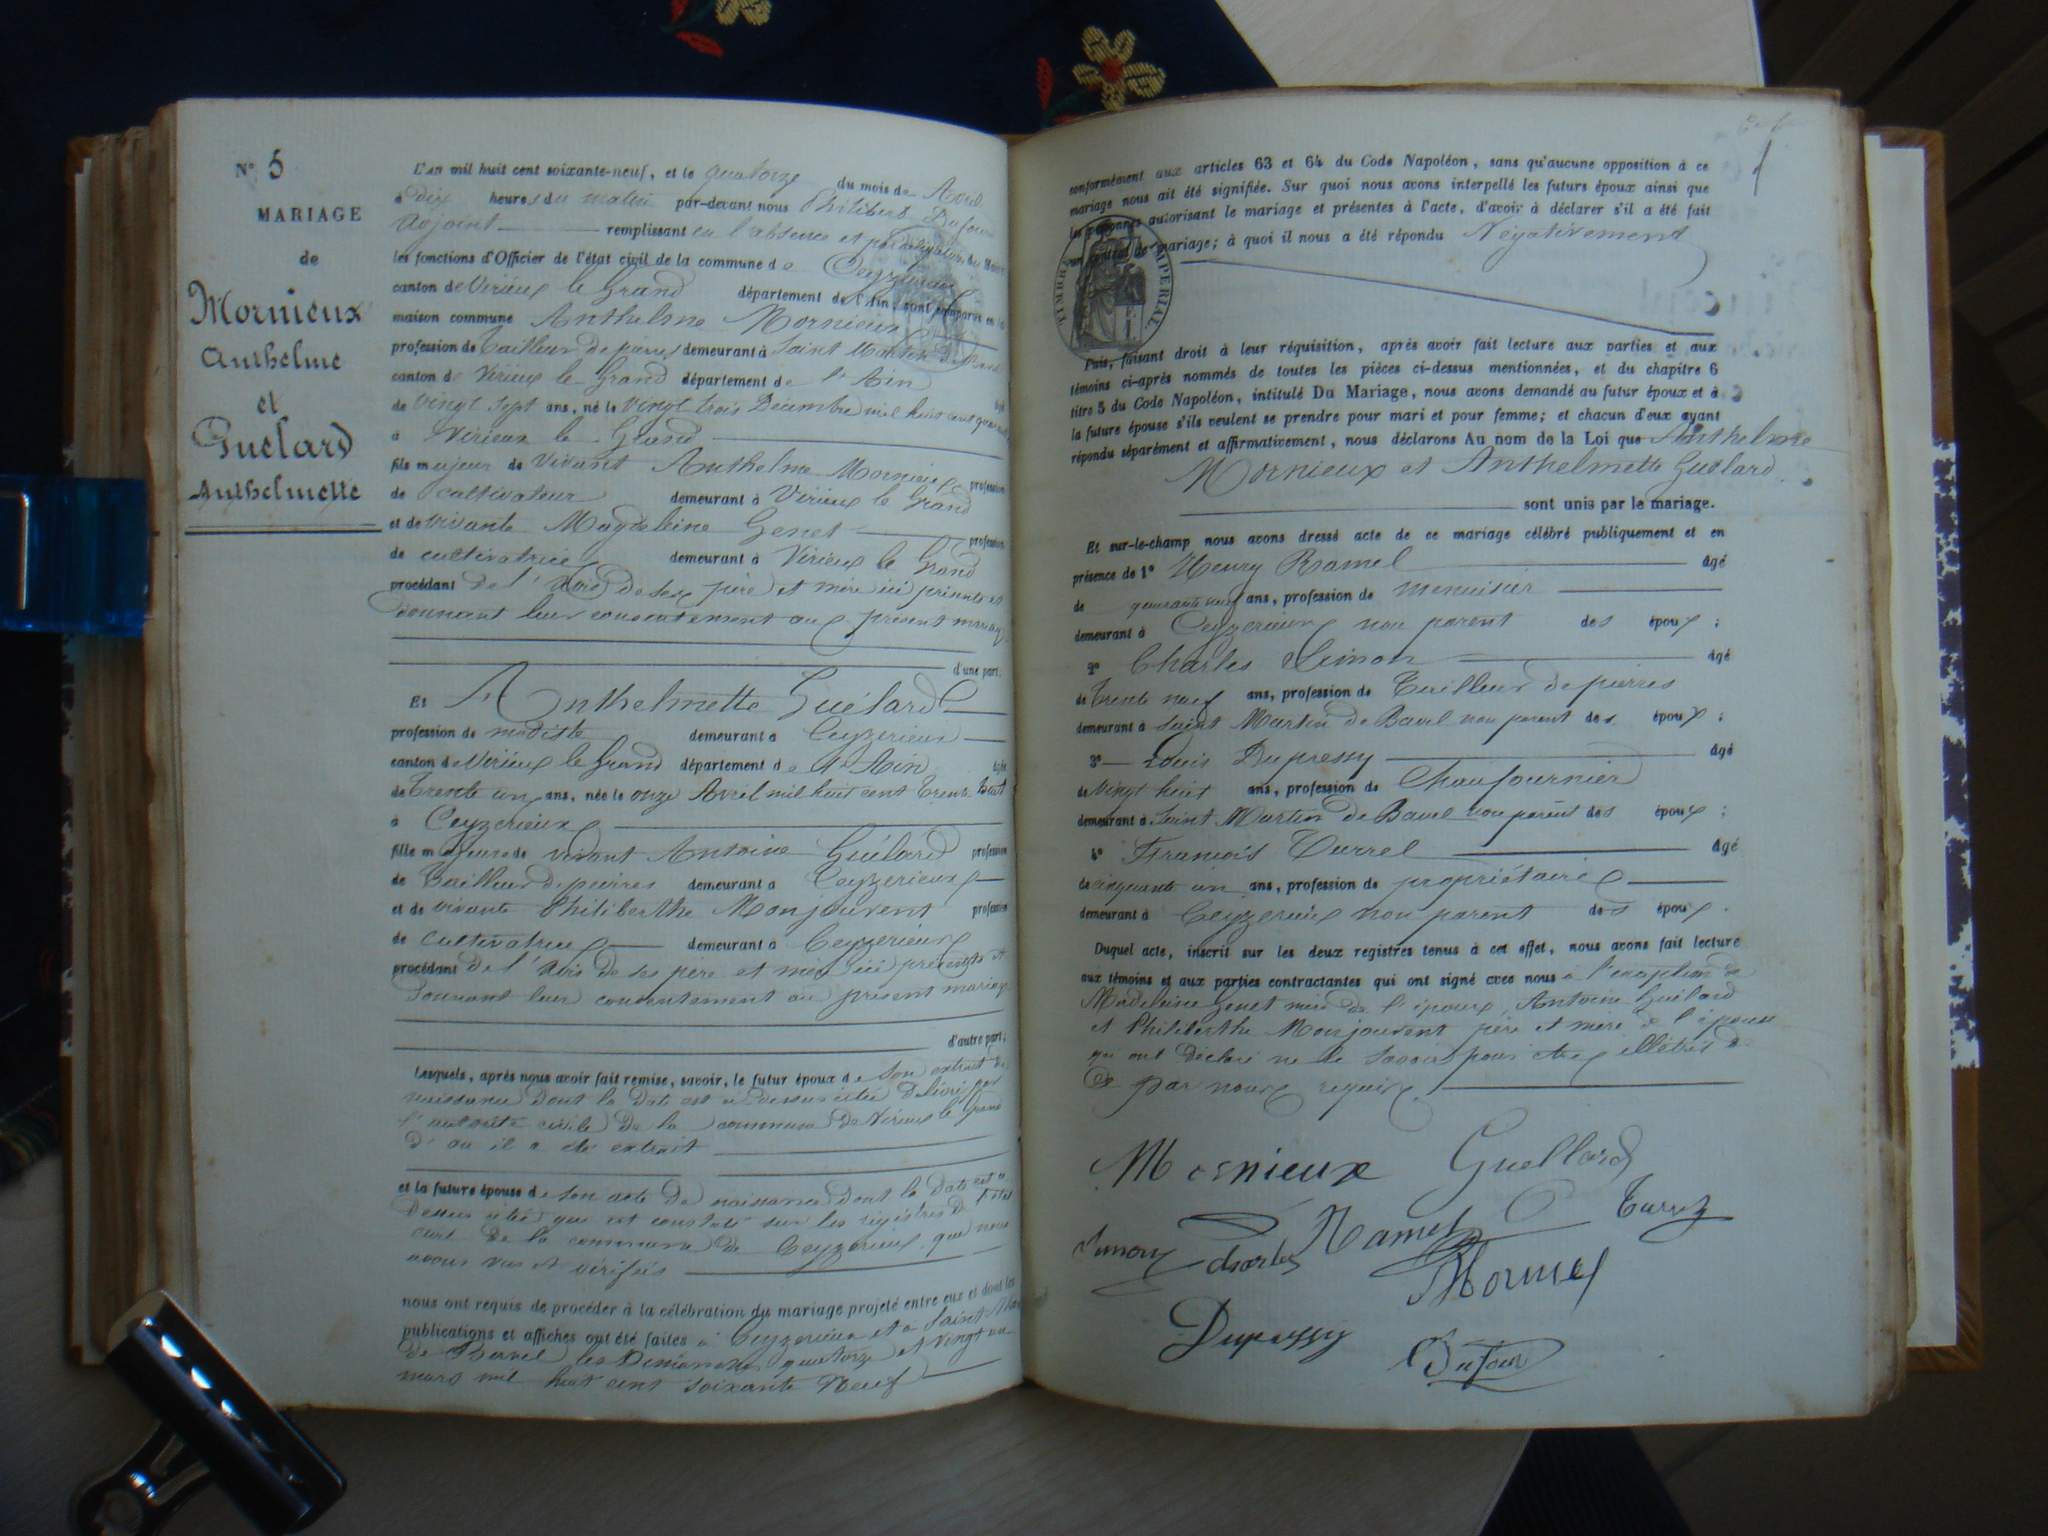 N° 5
MARIAGE
de
Mornieux
Anthelme
et
Guélard
Anthelmette
L'an mil huit cent soixante-neuf, et le quatorze du mois de Avril
à Dix heures du matin par-devant nous Philibert Dufour
Adjoint remplissant en l'absence et par délégation du Maire
les fonctions d'Officier de l'état civil de la commune de Ceyzérieux
canton de Virieux le Grand département de l'Ain, sont comparus en la
maison commune Anthelme Mornieux
profession de Tailleur de pierres demeurant à Saint Martin de
canton de Virieux le Grand département de l'Ain
de Vingt sept ans, né le Vingt trois Décembre mil huit cent
à Virieux le Grand
fils majeur de vivant Anthelme Mornieux profession
de cultivateur demeurant à Virieux le Grand
et de vivante Magdeleine Genet profession
de cultivatrice demeurant à Virieux le Grand
procédant de l'avis de ses père et mère ici présents et
donnant leur consentement au présent mariage
d'une part.
Et Anthelmette Guélard
profession de modiste demeurant à Ceyzerieux
canton de Virieux le Grand département de l'Ain âgée
de Trente un ans, née le onze Avril mil huit cent Trente huit
à Ceyzerieux
fille majeure de vivant Antoine Guélard profession
de Tailleur de pierres demeurant à Ceyzerieux
et de vivante Philiberthe Monjouvent profession
de Cultivatrice demeurant à Ceyzerieux
procédant de l'avis de ses père et mère ici présents et
donnant leur consentement au présent mariage
d'autre part;
Lesquels, après nous avoir fait remise, savoir, le futur époux de son extrait de
naissance dont la date est ci dessus citée délivré par
l'autorité civile de la commune de Virieux le Grand
d'où il a été extrait
et la future épouse de son acte de naissance dont la date est ci
dessus citée que est constaté sur les registres de l'état
civil de la commune de Ceyzerieux que nous
avons vus et vérifiés
nous ont requis de procéder à la célébration du mariage projeté entre eux et dont les
publications et affiches ont été faites à Ceyzerieux et à Saint Martin
de Bavel les Dimanches quatorze et vingt un
mars mil huit cent soixante Neuf
conformément aux articles 63 et 64 du Code Napoléon, sans qu'aucune opposition à ce
mariage nous ait été signifiée. Sur quoi nous avons interpellé les futurs époux ainsi que
les personnes autorisant le mariage et présentes à l'acte, d'avoir à déclarer s'il a été fait
un contrat de mariage; à quoi il nous a été répondu Négativement
TIMBRE IMPERIAL
Puis, faisant droit à leur réquisition, après avoir fait lecture aux parties et aux
témoins ci-après nommés de toutes les pièces ci-dessus mentionnées, et du chapitre 6
titre 5 du Code Napoléon, intitulé Du Mariage, nous avons demandé au futur époux et à
la future épouse s'ils veulent se prendre pour mari et pour femme; et chacun d'eux ayant
répondu séparément et affirmativement, nous déclarons Au nom de la Loi que Anthelme
Mornieux et Anthelmette Guélard
sont unis par le mariage.
Et sur-le-champ nous avons dressé acte de ce mariage célébré publiquement et en
présence de 1° Henry Ramel âgé
de quarante neuf ans, profession de menuisier
demeurant à Ceyzerieux non parent des époux;
2° Charles Simon âgé
de Trente neuf ans, profession de Tailleur de pierres
demeurant à Saint Martin de Bavel non parent des époux;
3° Louis Dupressy âgé
de Vingt huit ans, profession de Chaufournier
demeurant à Saint Martin de Bavel non parent des époux;
4° François Turrel âgé
de cinquante un ans, profession de propriétaire
demeurant à Ceyzerieux non parent des époux.
Duquel acte, inscrit sur les deux registres tenus à cet effet, nous avons fait lecture
aux témoins et aux parties contractantes qui ont signé avec nous à l'exception de
Madeleine Genet mère de l'époux, Antoine Guélard
et Philiberthe Monjouvent père et mère de l'épouse
qui ont déclaré ne le savoir pour être illétrés de
ce par nous requis
Mornieux Guellard
Simon Charles Ramel Turrel
Dupressy Dufour